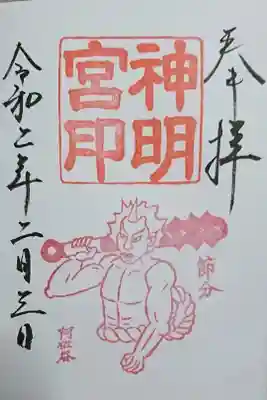 奉拝
神明
宮印
節分
令和二年二月三日